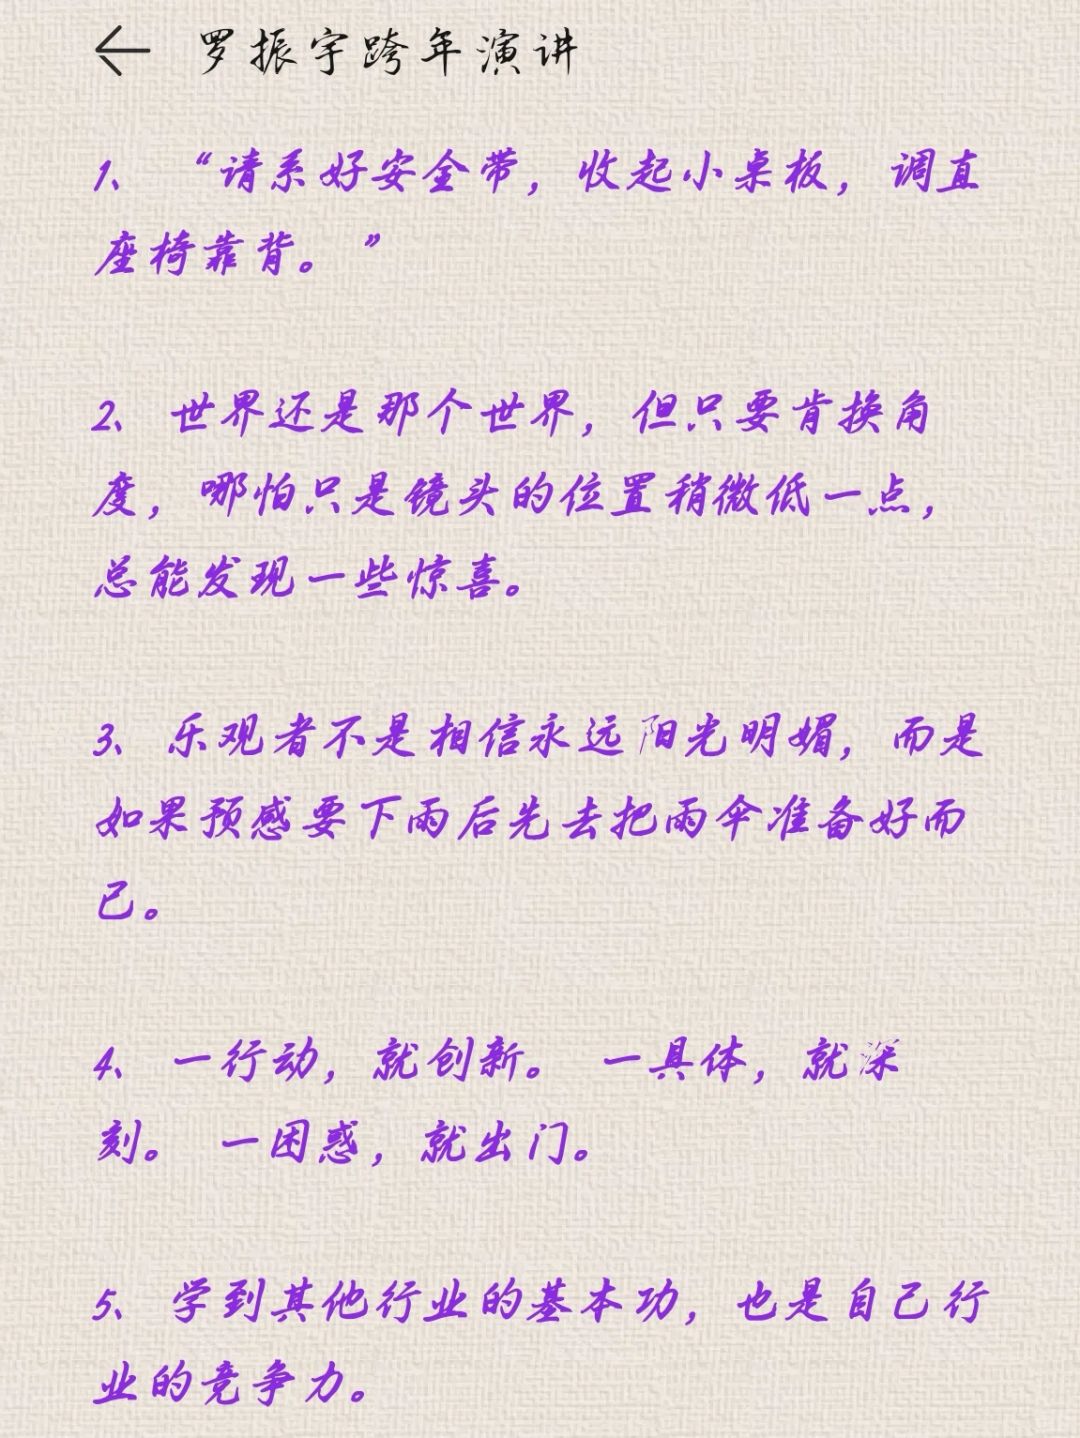 罗振宇跨年演讲
1、“请系好安全带，收起小桌板，调直
座椅靠背。”
2、世界还是那个世界，但只要肯换角
度，哪怕只是镜头的位置稍微低一点，
总能发现一些惊喜。
3、乐观者不是相信永远阳光明媚，而是
如果预感要下雨后先去把雨伞准备好而
已。
4、一行动，就创新。 一具体，就深
刻。 一困惑，就出门。
5、学到其他行业的基本功，也是自己行
业的竞争力。